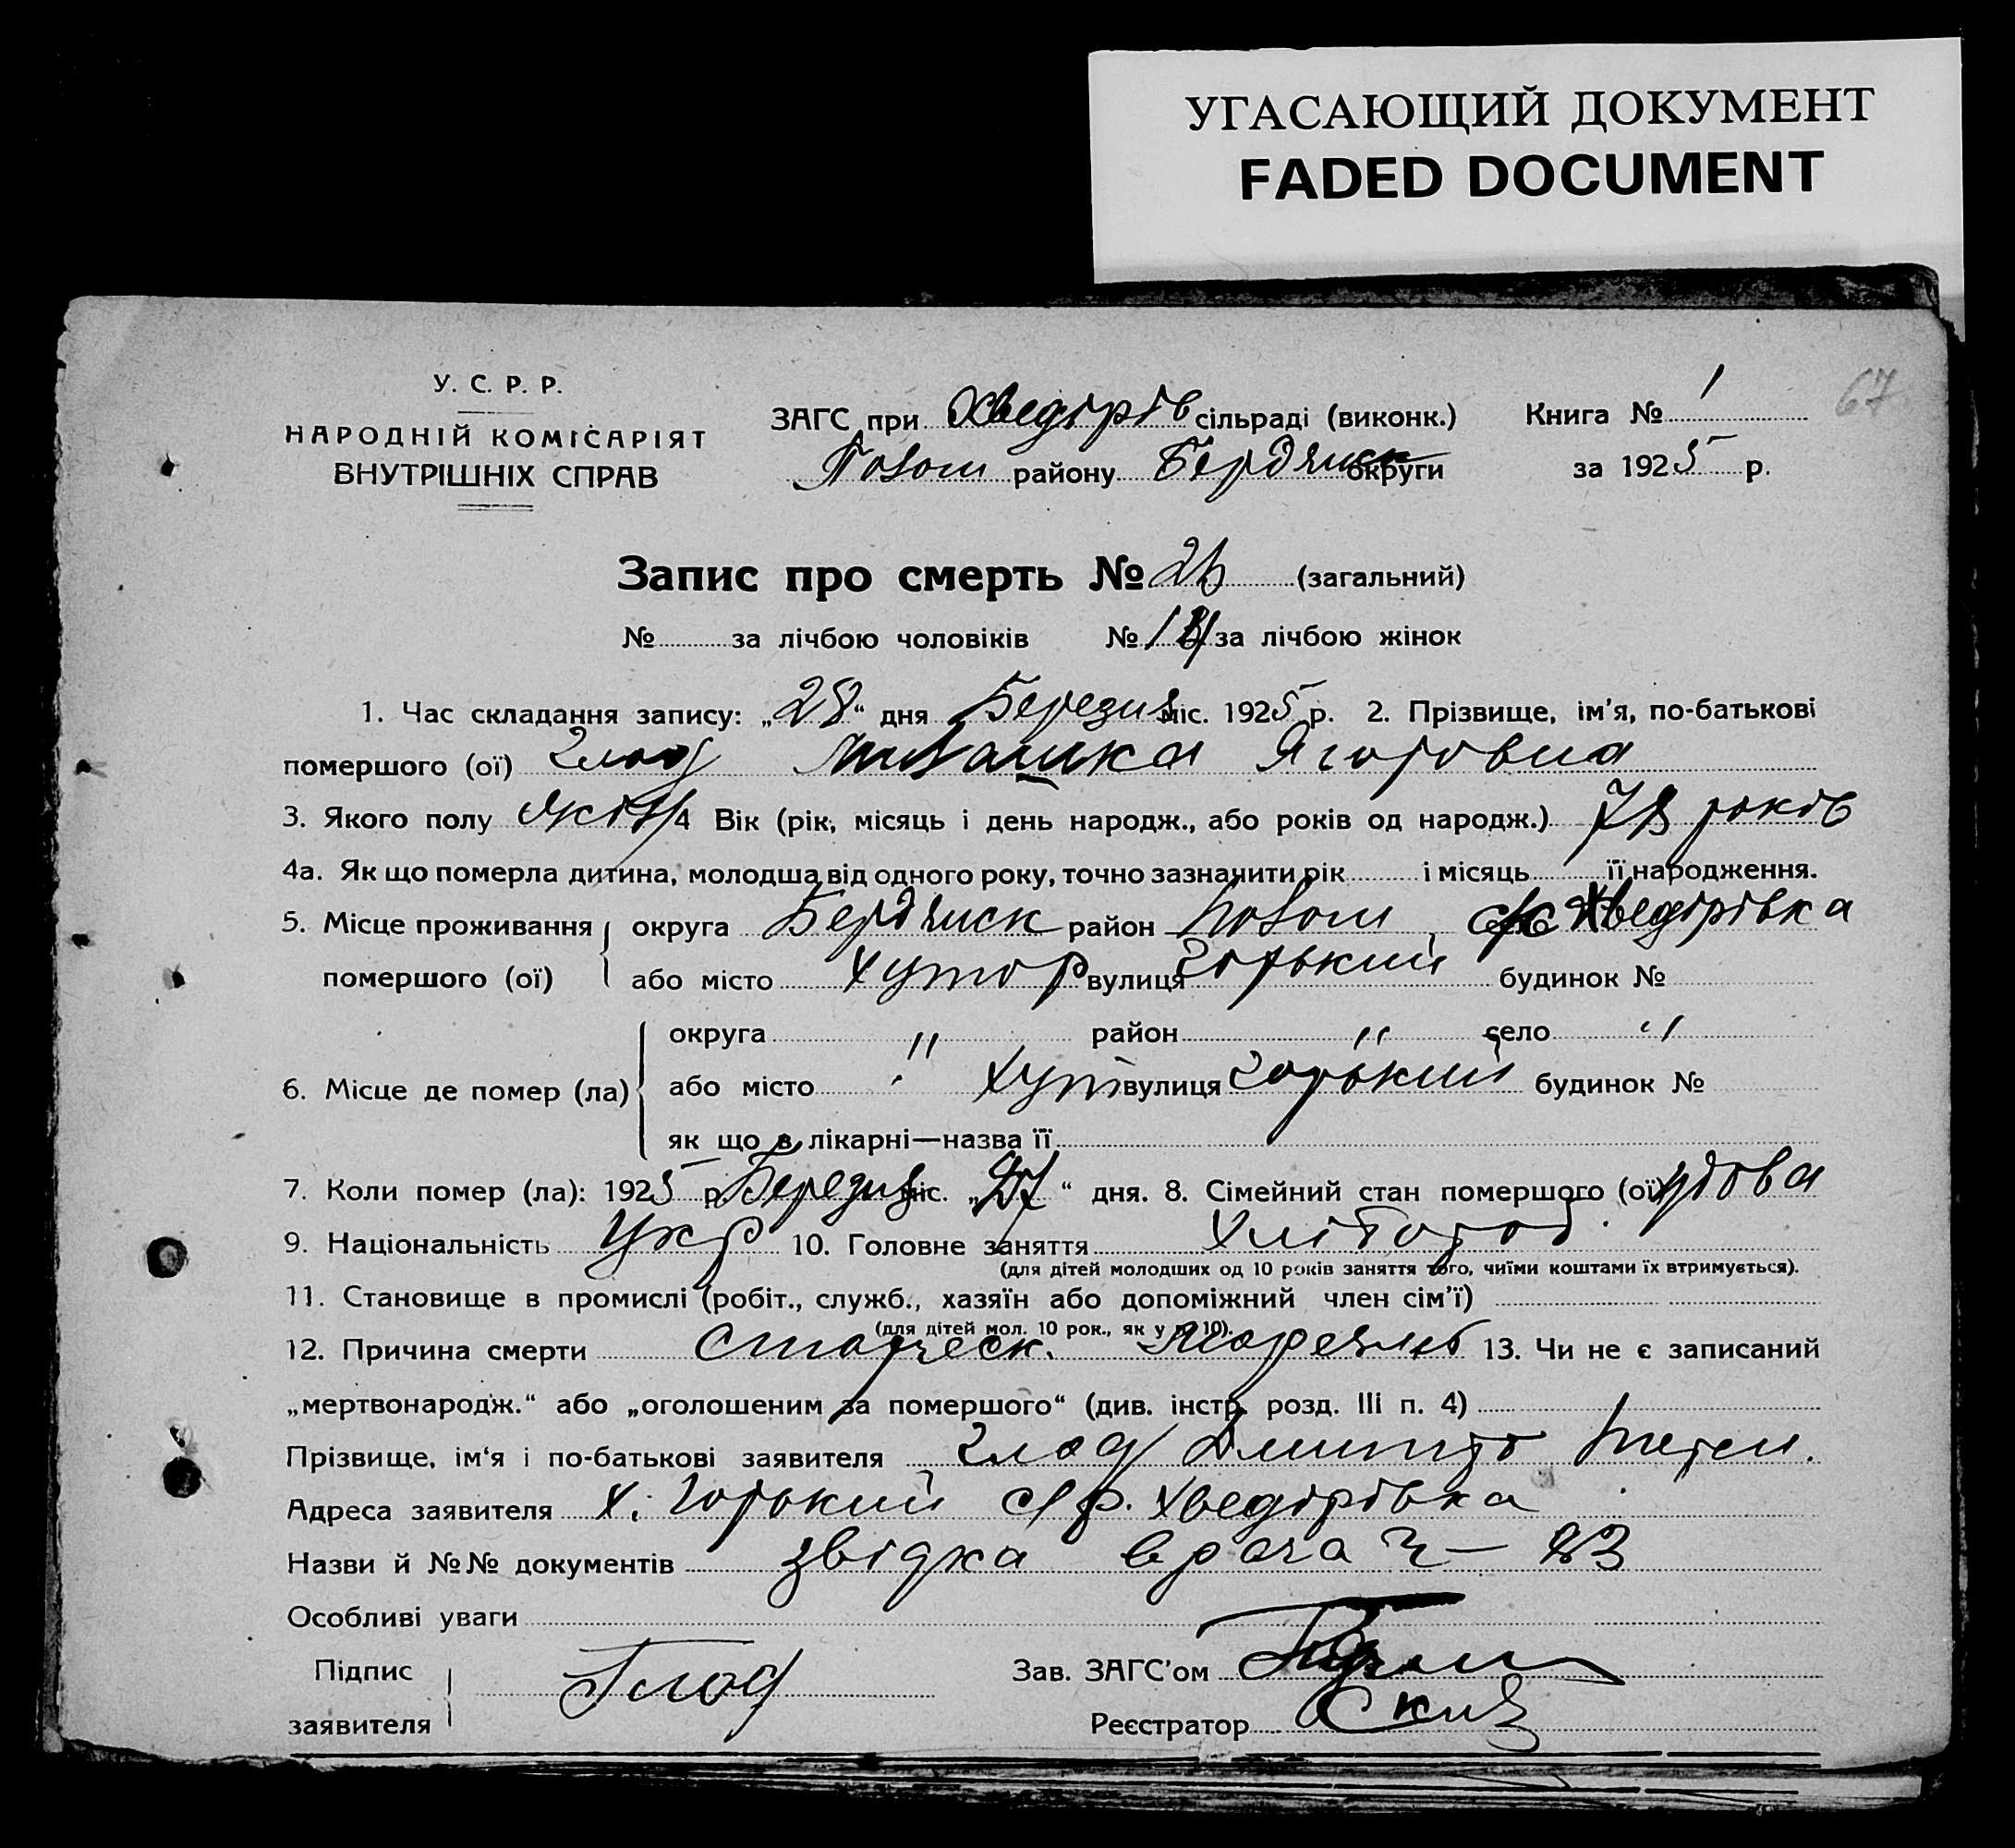 УГАСАЮЩИЙ ДОКУМЕНТ
FADED DOCUMENT
67
У. С. Р. Р.
НАРОДНІЙ КОМІСАРІЯТ
ВНУТРІШНІХ СПРАВ
ЗАГС при Хведірів сільраді (виконк.)
района Бердянск округи
Книга № 1
за 1925 р.
Запис про смерть № 26 (загальний)
№ за лічбою чоловіків № за лічбою жінок
1. Час складання запису: „28“ дня Березня міс. 1925 р. 2. Прізвище, ім'я, по-батькові
помершого (ої) Глод Ягоровна
3. Якого полу жін 4 Вік (рік, місяць і день народж., або років од народж.) 78 років
4а. Як що померла дитина, молодша від одного року, точно зазначити рік і місяць її народження.
5. Місце проживання округа Бердянск район с/р Хведірівка
помершого (ої) або місто Хутор вулиця Горький будинок №
округа " район " село "
6. Місце де помер (ла) або місто " Хут вулиця Горький будинок №
як що в лікарні—назва її
7. Коли помер (ла): 1925 р. Березня міс. „27“ дня. 8. Сімейний стан помершого (ої) удова
9. Національність Укр 10. Головне заняття Хлібороб
(для дітей молодших од 10 років заняття того, чиїми коштами їх втримується).
11. Становище в промислі (робіт., служб., хазяїн або допоміжний член сім'ї)
(для дітей мол. 10 рок., як у п. 10).
12. Причина смерти Старческ. 13. Чи не є записаний
„мертвонародж.“ або „оголошеним за помершого“ (див. інстр. розд. III п. 4)
Прізвище, ім'я і по-батькові заявителя Глод Дмитро
Адреса заявителя х. Горький с/р. Хведірівка
Назви й №№ документів звідка врача ч — 83
Особливі уваги
Підпис
заявителя Глод
Зав. ЗАГС'ом
Реєстратор